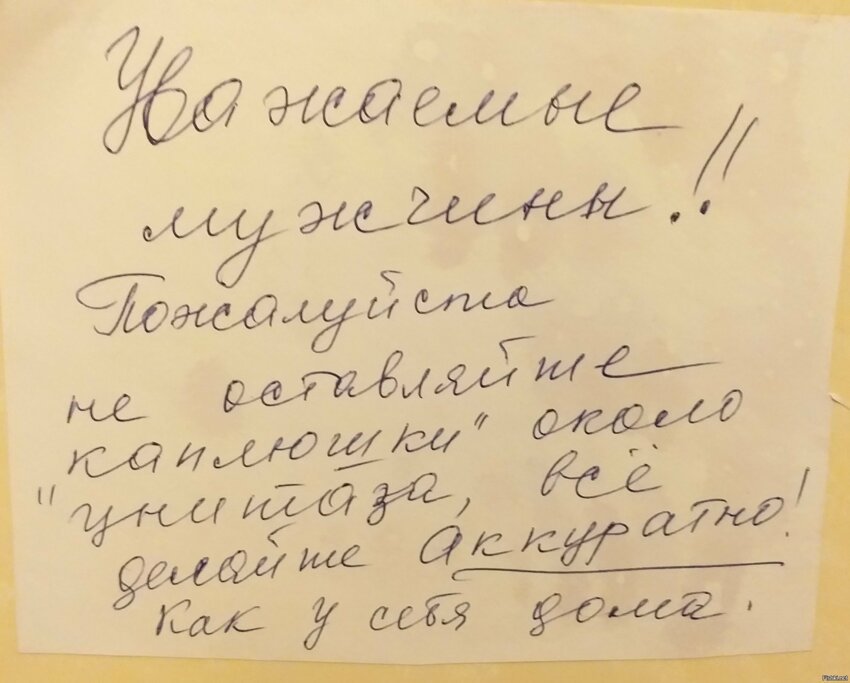 Уважаемые
мужчины!!
Пожалуйста
не оставляйте
каплюшки" около
"унитаза, всё
делайте Аккуратно!
как у себя дома.
Fishki.net